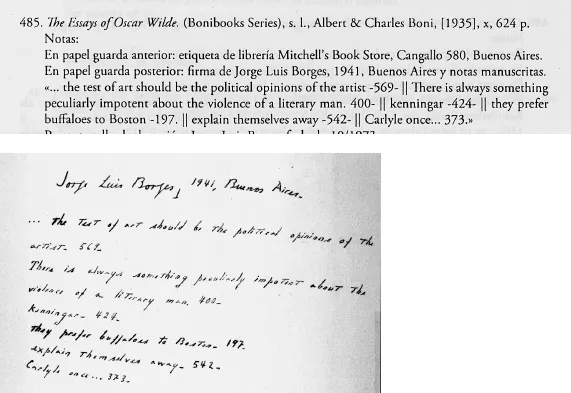 485. The Essays of Oscar Wilde. (Bonibooks Series), s. l., Albert & Charles Boni, [1935], x, 624 p.
Notas:
En papel guarda anterior: etiqueta de librería Mitchell's Book Store, Cangallo 580, Buenos Aires.
En papel guarda posterior: firma de Jorge Luis Borges, 1941, Buenos Aires y notas manuscritas.
«... the test of art should be the political opinions of the artist -569- || There is always something
peculiarly impotent about the violence of a literary man. 400- || kenningar -424- || they prefer
buffaloes to Boston -197. || explain themselves away -542- || Carlyle once... 373.»
Jorge Luis Borges, 1941, Buenos Aires.
... the test of art should be the political opinions of the
artist- 569-
There is always something peculiarly impotent about the
violence of a literary man. 400-
Kenningar- 424-
they prefer buffaloes to Boston- 197-
explain themselves away- 542-
Carlyle once... 373-